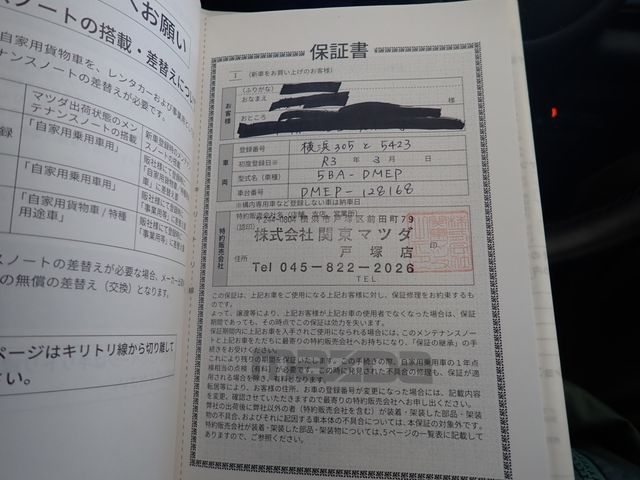 お願い
スノートの搭載・差替えについ
自家用貨物車を、レンタカーおよび事業用
テナンスノートの差替えが必要です。
マツダ出荷状態のメン
テナンスノートの搭載
「自家用乗用車用」
「自家用乗用車用」
「自家用貨物車/特種
用途車」
スノートの差替えが必要な場合、メーカー
の無償の差替え（交換）となります。
ページはキリトリ線から切り離して
さい。
保証書
1 (新車をお買い上げのお客様)
お客様
(ふりがな)
おなまえ
様
おところ
車両
登録番号
横浜 305 と 5423
初度登録日※
R3 年 3 月 日
型式名(車種)
5BA-DMEP
車台番号
DMEP-128168
※構内専用車など登録しない車は納車日
特約販売会社
特約販売会社名(店舗、支店、営業所)
(認印)
〒244-0804 横浜市戸塚区前田町79
株式会社 関東マツダ
印
戸塚店
住所
Tel 045-822-2026
TEL
この保証は、上記お車をご使用になる上記お客様に対し、保証修理をお約束するも
のです。
よって、譲渡等により、上記お客様が上記お車の使用者でなくなった場合は、保証
期間内であっても、その時点でこの保証は効力を失います。
保証期間内に上記お車を入手されご使用になられる場合には、このメンテナンスノー
トと上記お車をただちに最寄りの特約販売会社へお持ちになり、「保証の継承」の手
続きをお受けください。
これにより残りの期間を保証いたします。この手続きの際、自家用乗用車の1年点
検相当の点検（有料）が必要です。この時に発見された不具合の修理も、保証が適
用される場合を除き、有料となります。
転居等により、お客様の住所、お車の登録番号が変更になった場合には、記載内容
を変更、確認させていただきますので最寄りの特約販売会社へお申し出ください。
弊社の出荷後に弊社以外の者（特約販売会社を含む）が装着・架装した部品・架装
物の不具合、およびそれに起因する車本体の不具合については、本保証の対象外です。
特約販売会社が装着・架装した部品・架装物については、5ページの一覧表に記載して
ありますので、ご参照ください。